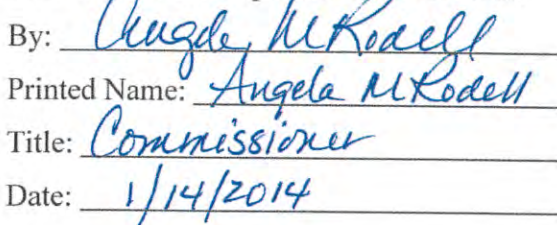 By: Angela M Rodell
Printed Name: Angela M Rodell
Title: Commissioner
Date: 1/14/2014